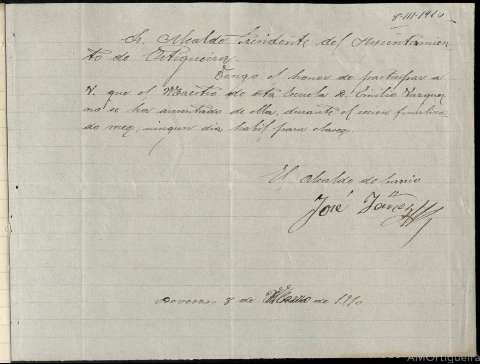 8-III-1910
Sr. Alcalde Presidente del Ayuntamien
to de Ortigueira
Tengo el honor de participar a
V. que el Maestro de esta Escuela D. Emilio Vazquez
no se ha ausentado de ella, durante el mes
de mes, ningun dia habil para clases
El Alcalde de barrio
José Yañez
8 de Marzo de 1910
AMOrtigueira